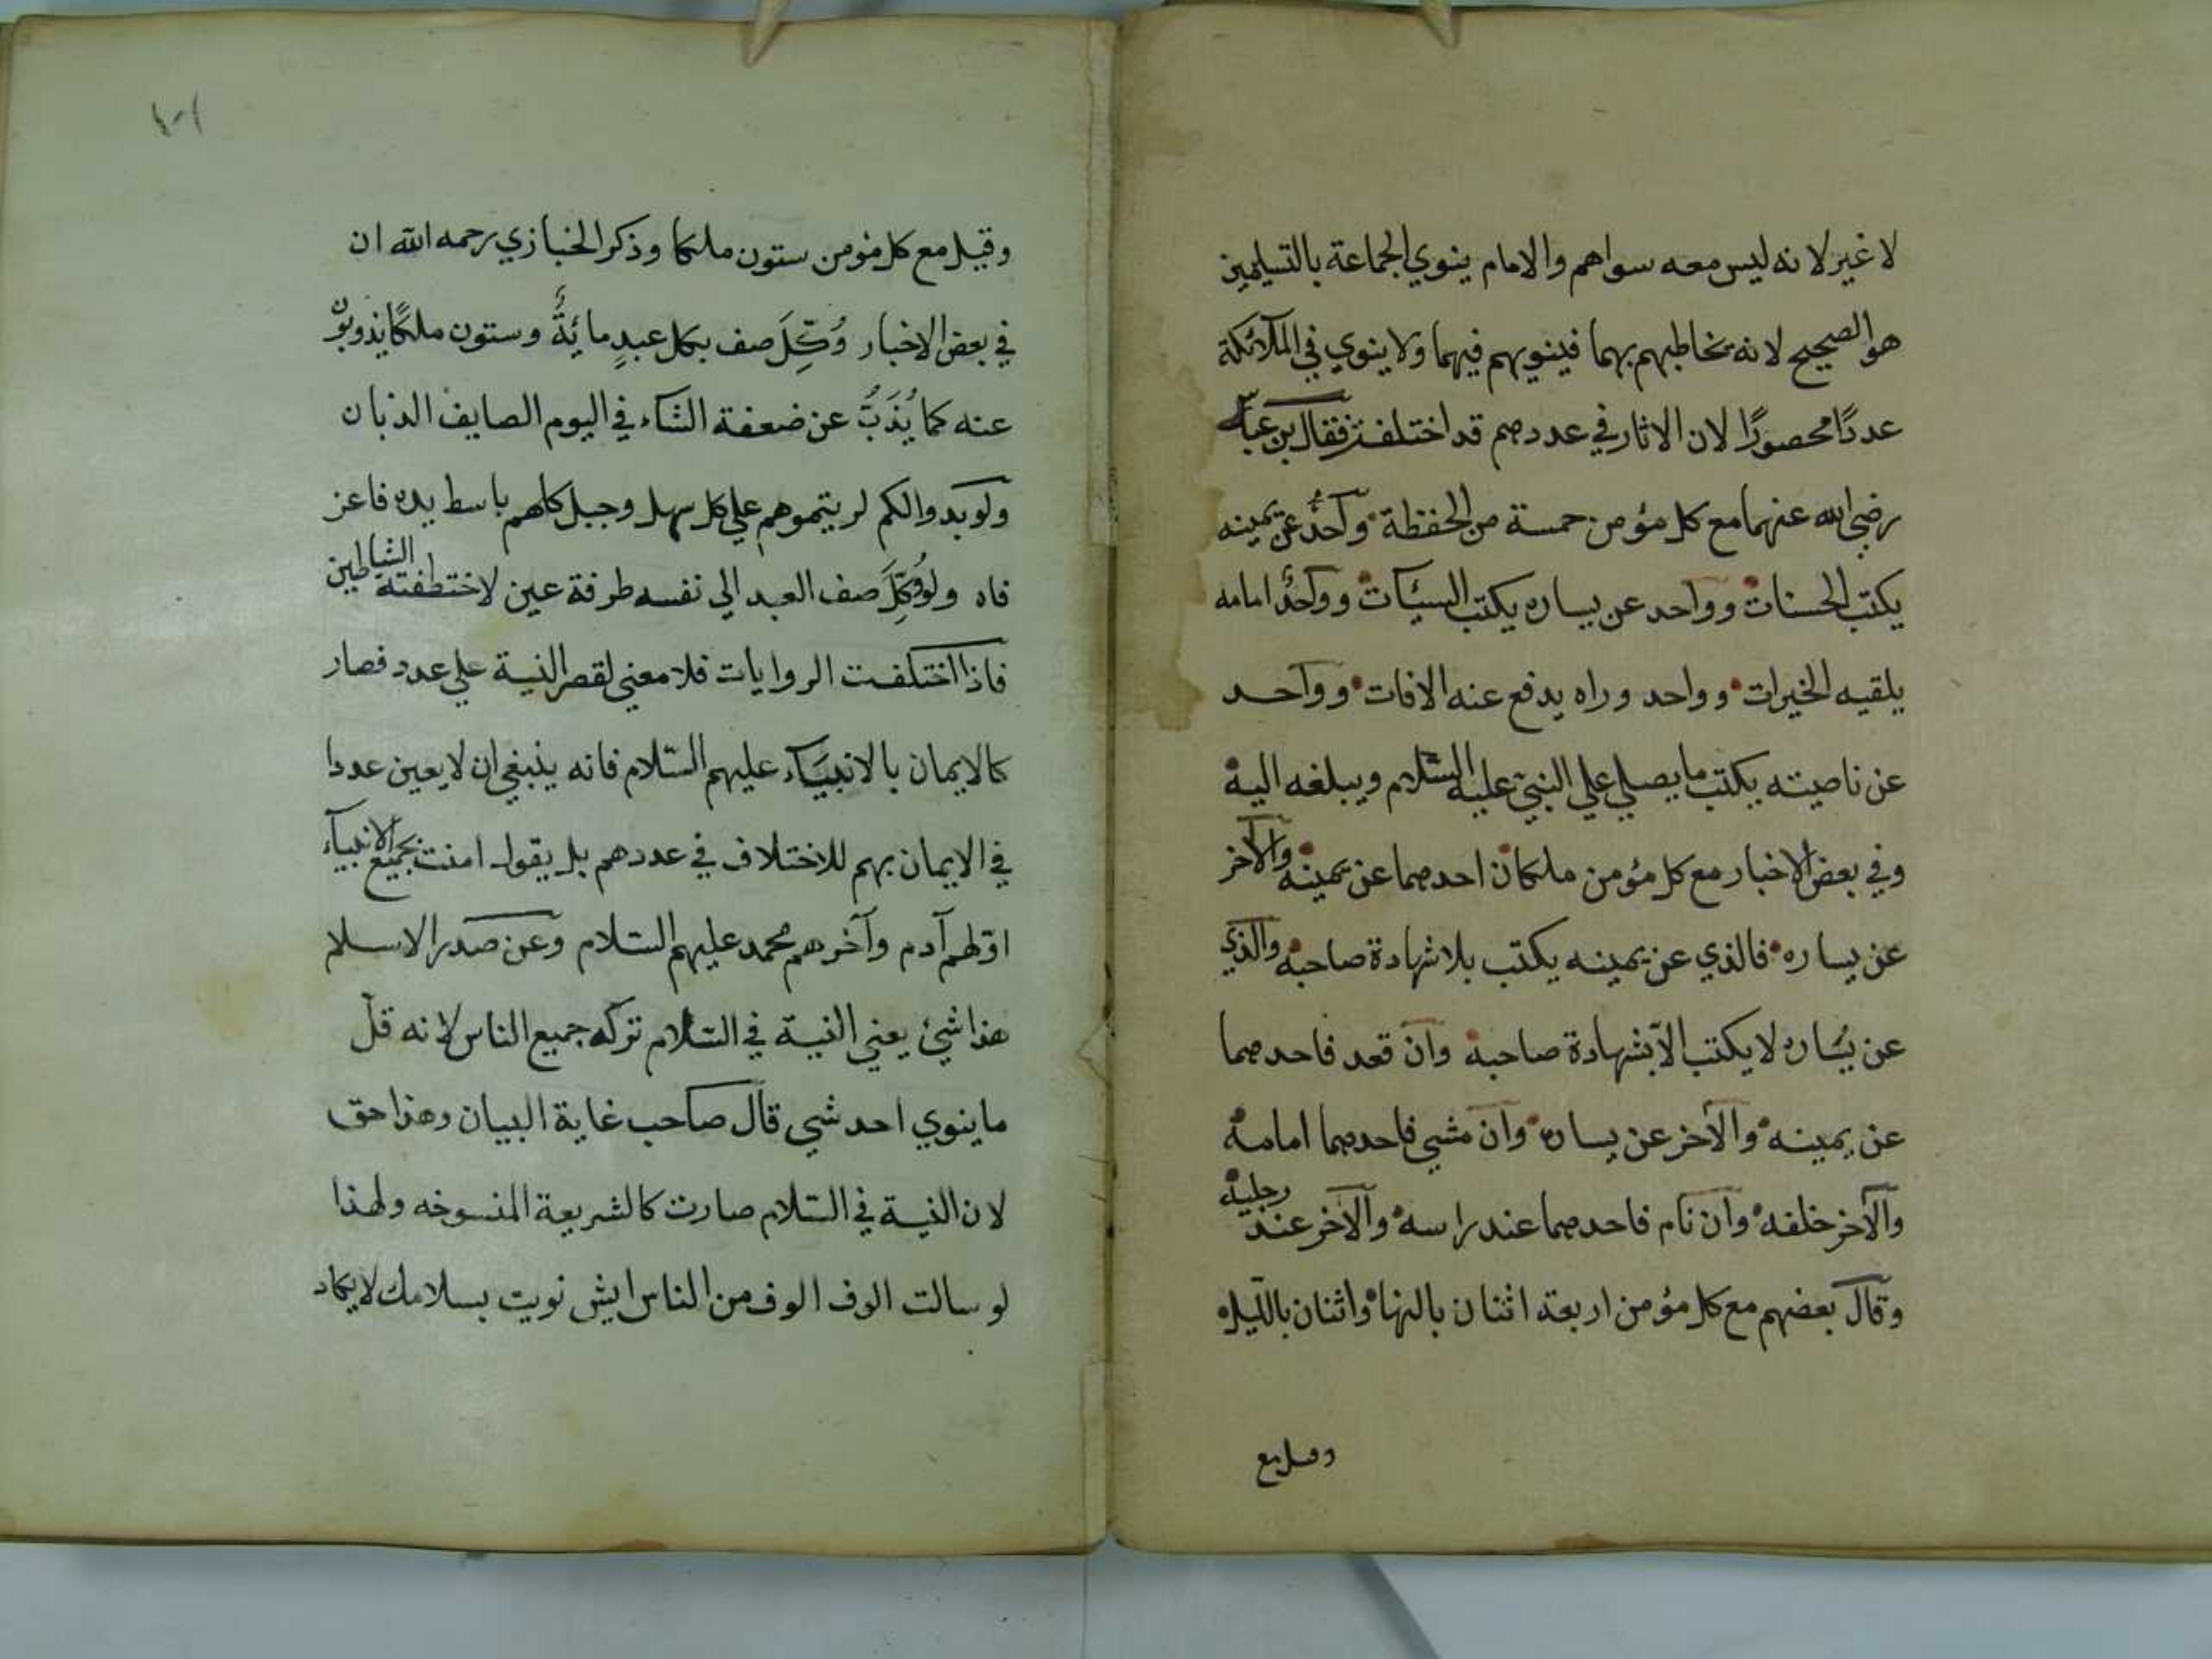 لا غير لانه ليس معه سواهم والامام ينوي الجماعة بالتسليمين
هو الصحيح لانه يخاطبهم بهما فينويهم فيهما ولا ينوي في الملآئكة
عددًا محصورًا لان الاثار في عددهم قد اختلفت فقال بن عباس
رضي الله عنهما مع كل مؤمن خمسة من الحفظة واحدٌ عن يمينه
يكتب الحسنات وواحد عن يساره يكتب السيئات وواحدٌ امامه
يلقيه الخيرات وواحد وراه يدفع عنه الافات وواحد
عن ناصيته يكتب ما يصلي علي النبي عليه السّلام ويبلغه اليه
وفي بعض الاخبار مع كل مؤمن ملكان احدهما عن يمينه والآخر
عن يساره فالذي عن يمينه يكتب بلا شهادة صاحبه والذي
عن يساره لا يكتب الّا بشهادة صاحبه وان قعد فاحدهما
عن يمينه والآخر عن يساره وان مشي فاحدهما امامه
والآخر خلفه وان نام فاحدهما عند راسه والآخر عند رجليه
وقال بعضهم مع كل مؤمن اربعة اثنان بالنهار واثنان بالليل
وقيل مع
١٠١
وقيل مع كل مؤمن ستون ملكا وذكر الخبازي رحمه الله ان
في بعض الاخبار وُكِّلَ صف بكل عبدٍ مائةٌ وستون ملكًا يذوبون
عنه كما يُذَبُّ عن ضعفة الشاء في اليوم الصايف الذبان
ولو بدوالكم لريتموهم علي كل سهل وجبل كلهم باسط يده فاعز
فاه ولو وُكِّلَ صف العبد الي نفسه طرفة عين لاختطفته الشياطين
فاذا اختلفت الروايات فلا معني لقصر النية علي عدد فصار
كالايمان بالانبيآء عليهم السّلام فانه ينبغي ان لا يعين عددا
في الايمان بهم للاختلاف في عددهم بل يقول امنت بجميع الانبيآء
اوّلهم آدم وآخرهم محمد عليهم السّلام وعن صدر الاسلام
هذا شئ يعني النية في السّلام تركه جميع الناس لانه قلّ
ما ينوي احد شي قال صاحب غاية البيان وهذا حق
لان النية في السّلام صارت كالشريعة المنسوخه ولهذا
لو سالت الوف الوف من الناس ايش نويت بسلامك لا يكاد